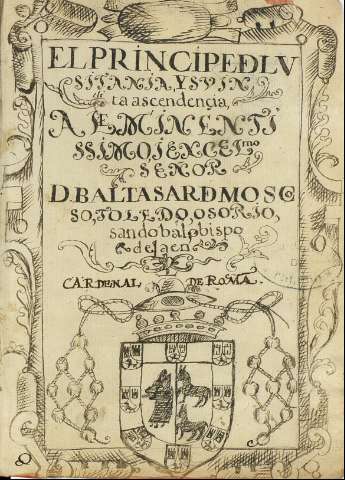 EL PRINCIPE DLV
SITANIA, Y SV IN
ta ascendençia,
A EMINENTI
SSIMO, I EXCEL.mo
SEÑOR
D. BALTASAR D MOSCO
SO, TOLEDO, OSORIO,
sandobal obispo
de Jaen
CARDENAL DE ROMA.